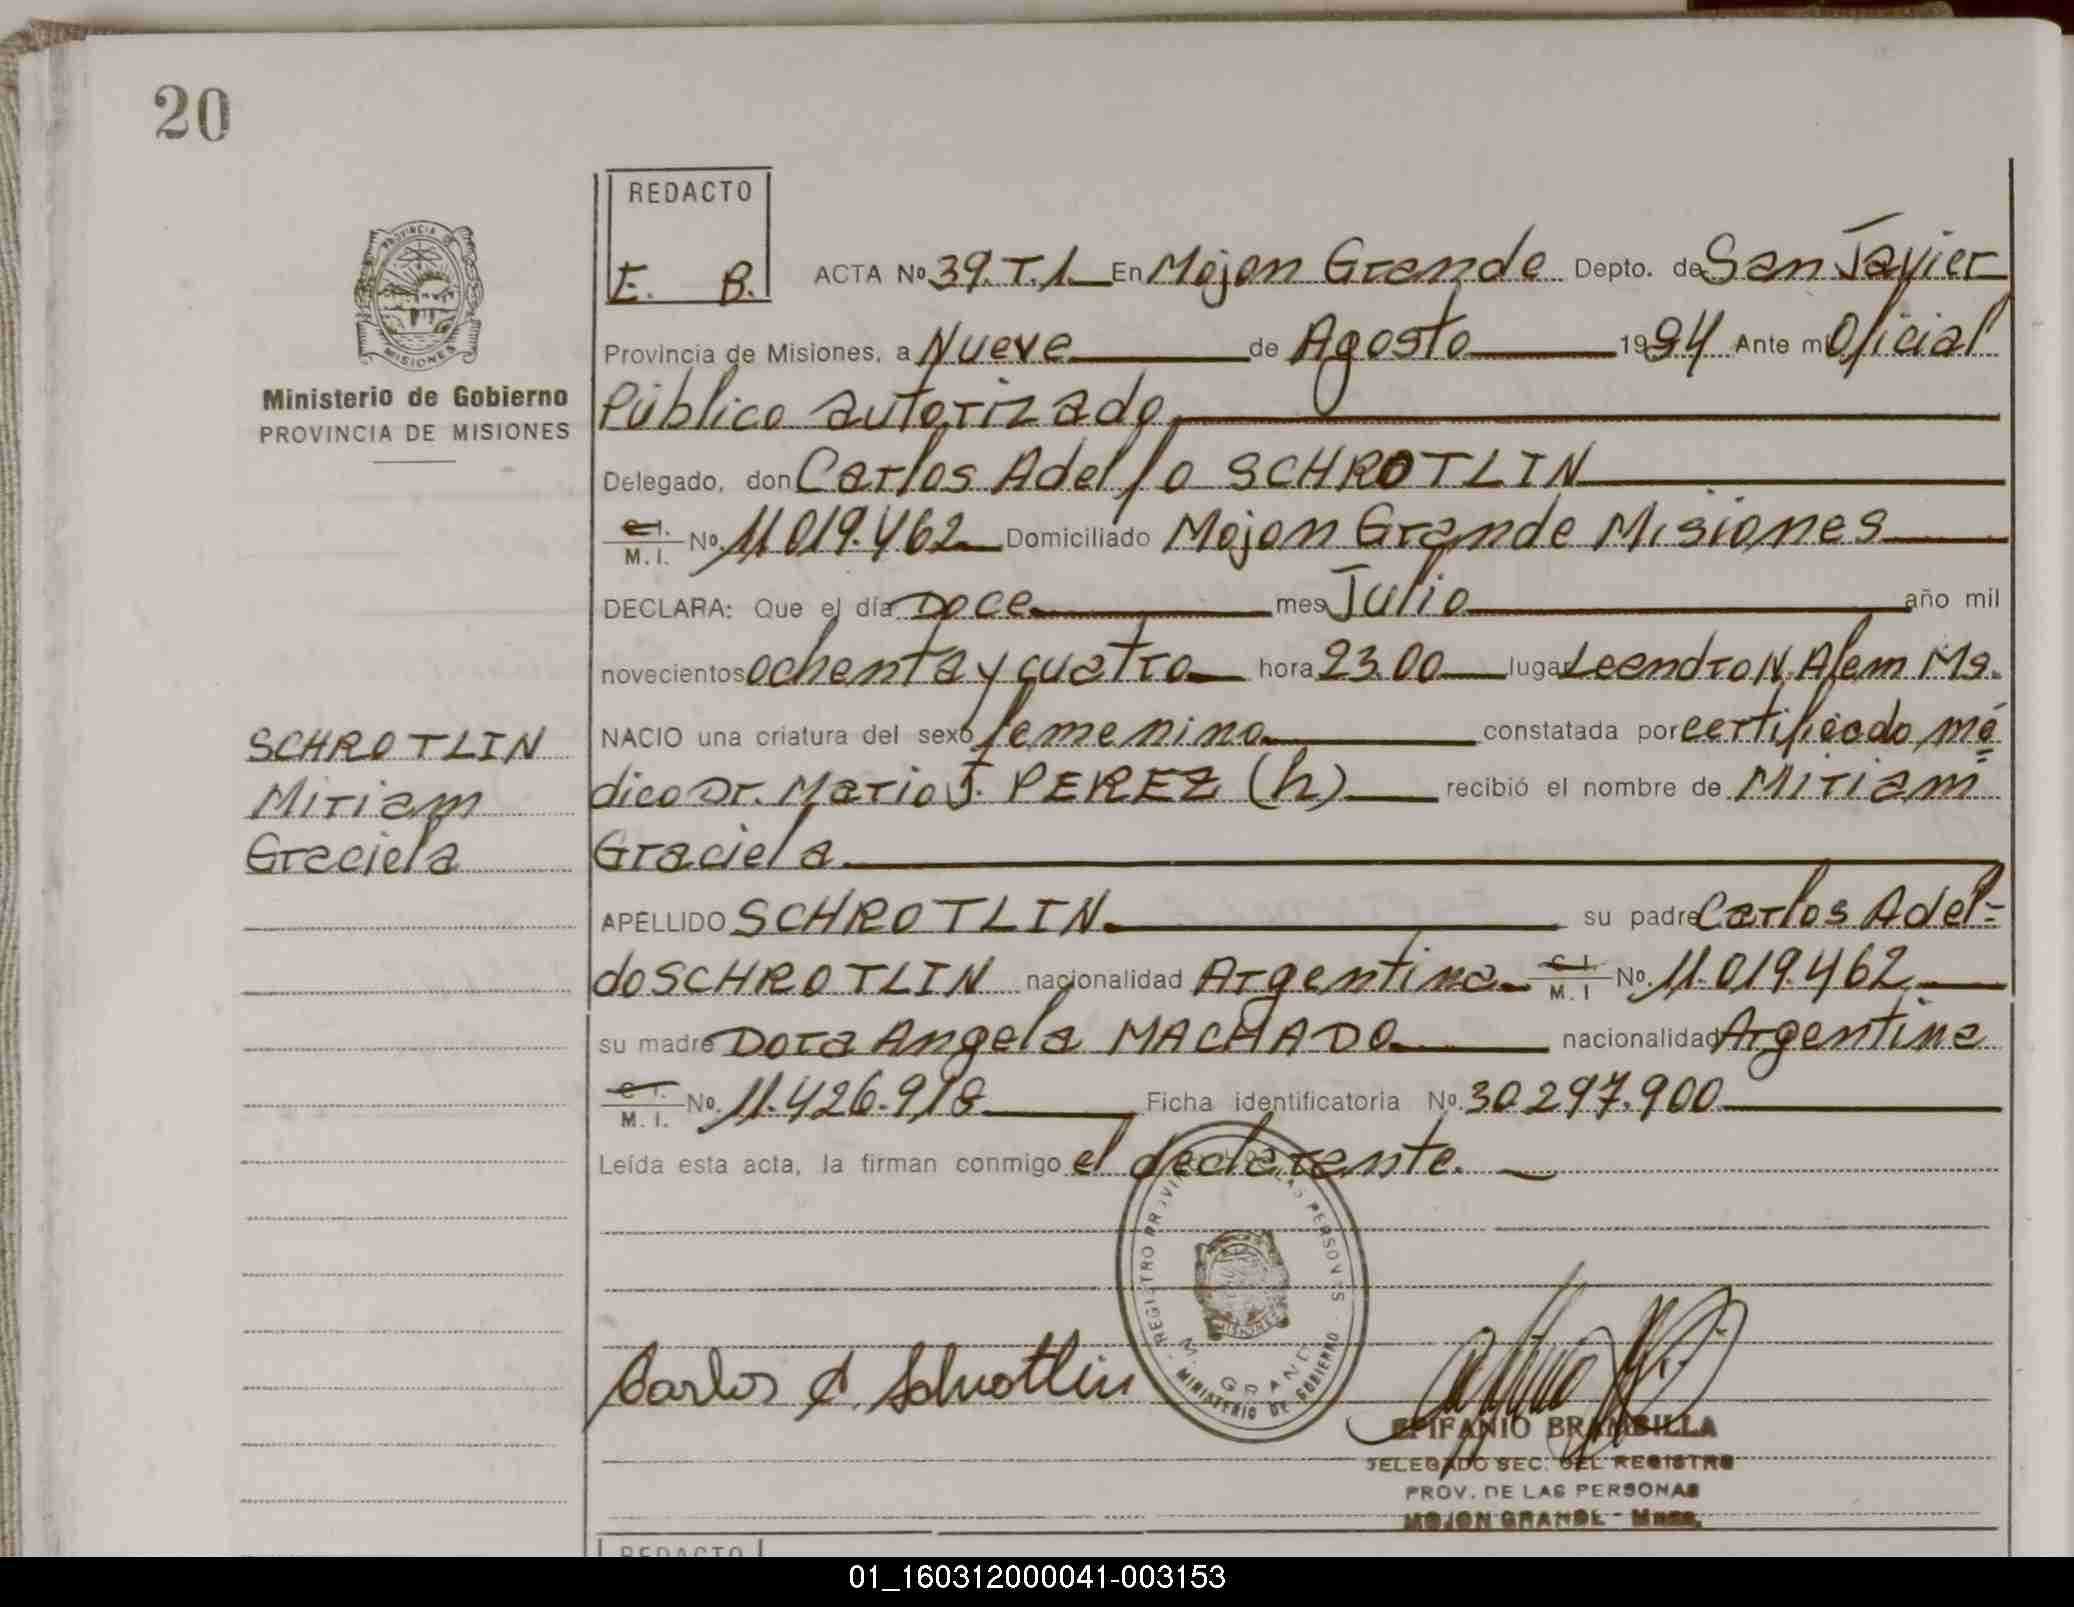 20
REDACTO
E. B.
ACTA No 39.T.1. En Mojon Grande Depto. de San Javier
PROVINCIA DE
MISIONES
Ministerio de Gobierno
PROVINCIA DE MISIONES
Provincia de Misiones, a Nueve de Agosto 1984 Ante mi Oficial
Público autorizado
Delegado, don Carlos Adelfo SCHROTLIN
C.I.
M.I. No. 11.019.462 Domiciliado Mojon Grande Misiones
DECLARA: Que el día Doce mes Julio año mil
novecientos ochenta y cuatro hora 23.00 lugar Leandro N. Alem Ms.
NACIO una criatura del sexo femenino constatada por certificado mé=
dico Dr. Mario J. PEREZ (h) recibió el nombre de Miriam
Graciela
SCHROTLIN
Miriam
Graciela
APELLIDO SCHROTLIN su padre Carlos Adel=
do SCHROTLIN nacionalidad Argentina C.I.
M.I No. 11.019.462
su madre Dora Angela MACHADO nacionalidad Argentina
C.I.
M.I. No. 11.426.918 Ficha identificatoria No. 30.297.900
Leída esta acta, la firman conmigo el declarante.
REGISTRO PROVINCIAL DE LAS PERSONAS
M. GRANDE
MINISTERIO DE GOBIERNO
Carlos A. Schrotlin
EPIFANIO BRAMBILLA
DELEGADO SEC. DEL REGISTRO
PROV. DE LAS PERSONAS
MOJON GRANDE - Mnes.
REDACTO
01_160312000041-003153